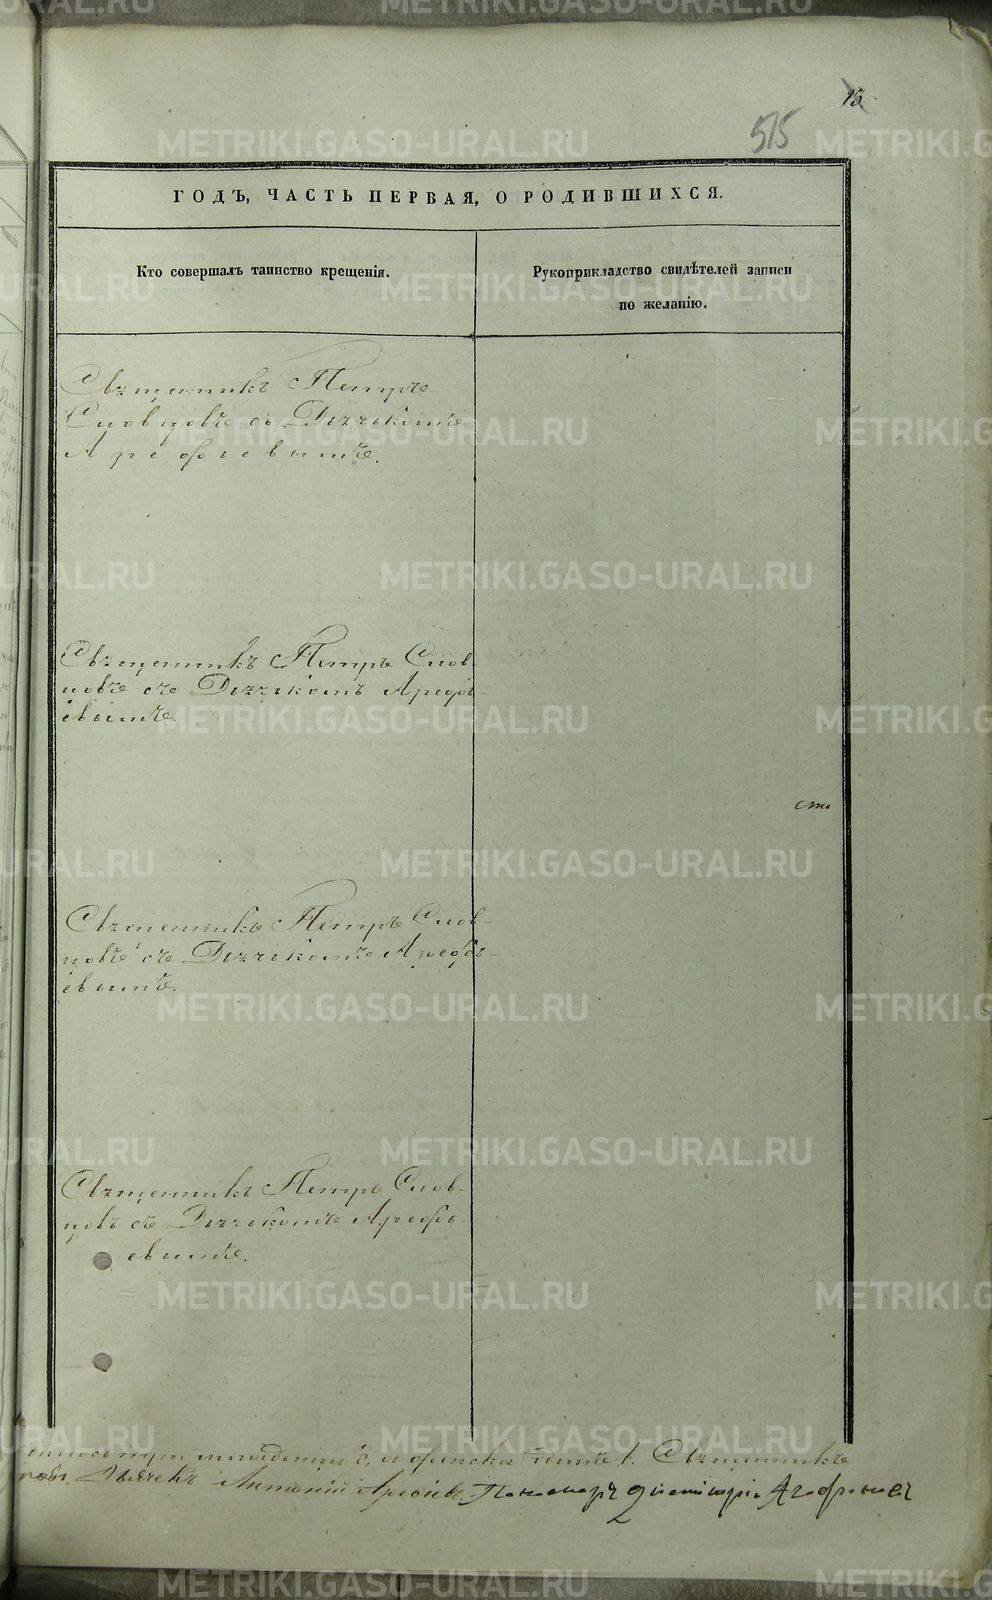 13
515
ГОДЪ, ЧАСТЬ ПЕРВАЯ, О РОДИВШИХСЯ.
Кто совершалъ таинство крещенія.
Рукоприкладство свидѣтелей записи
по желанію.
Священникъ Петръ
Словцовъ съ Дьячкомъ
Арефьевымъ.
Священникъ Петръ Слов-
цовъ съ Дьячкомъ Арефь-
евымъ.
ст.
Священникъ Петръ Слов-
цовъ съ Дьячкомъ Арефь-
евымъ.
Священникъ Петръ Слов-
цовъ съ Дьячкомъ Арефь-
евымъ.
Священникъ
Дьячекъ Антоній Пономарь Димитрій
METRIKI.GASO-URAL.RU